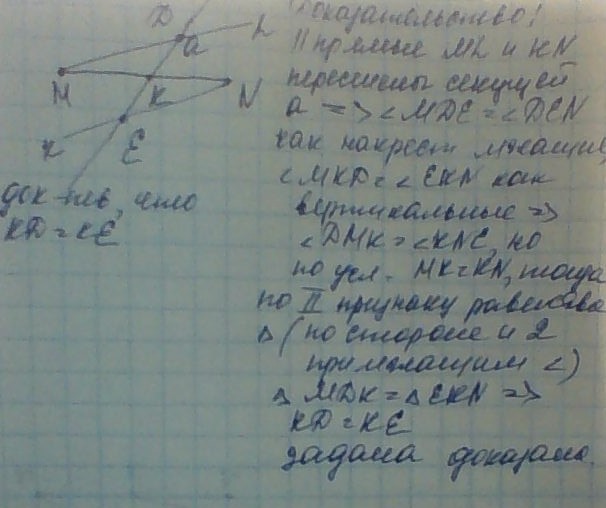 D
L
a
M
K
N
к
E
док-ть, что
KD = KE
Доказательство!
II прямые ML и KN
пересечены секущей
a => < MDE = < DEN
как накрест лежащие,
< MKD = < EKN как
вертикальные =>
< DMK = < KNE, но
по усл. MK = KN, тогда
по II признаку равенства
Δ (по стороне и 2
прилежащим <)
Δ MDK = Δ EKN =>
KD = KE
задача доказана.